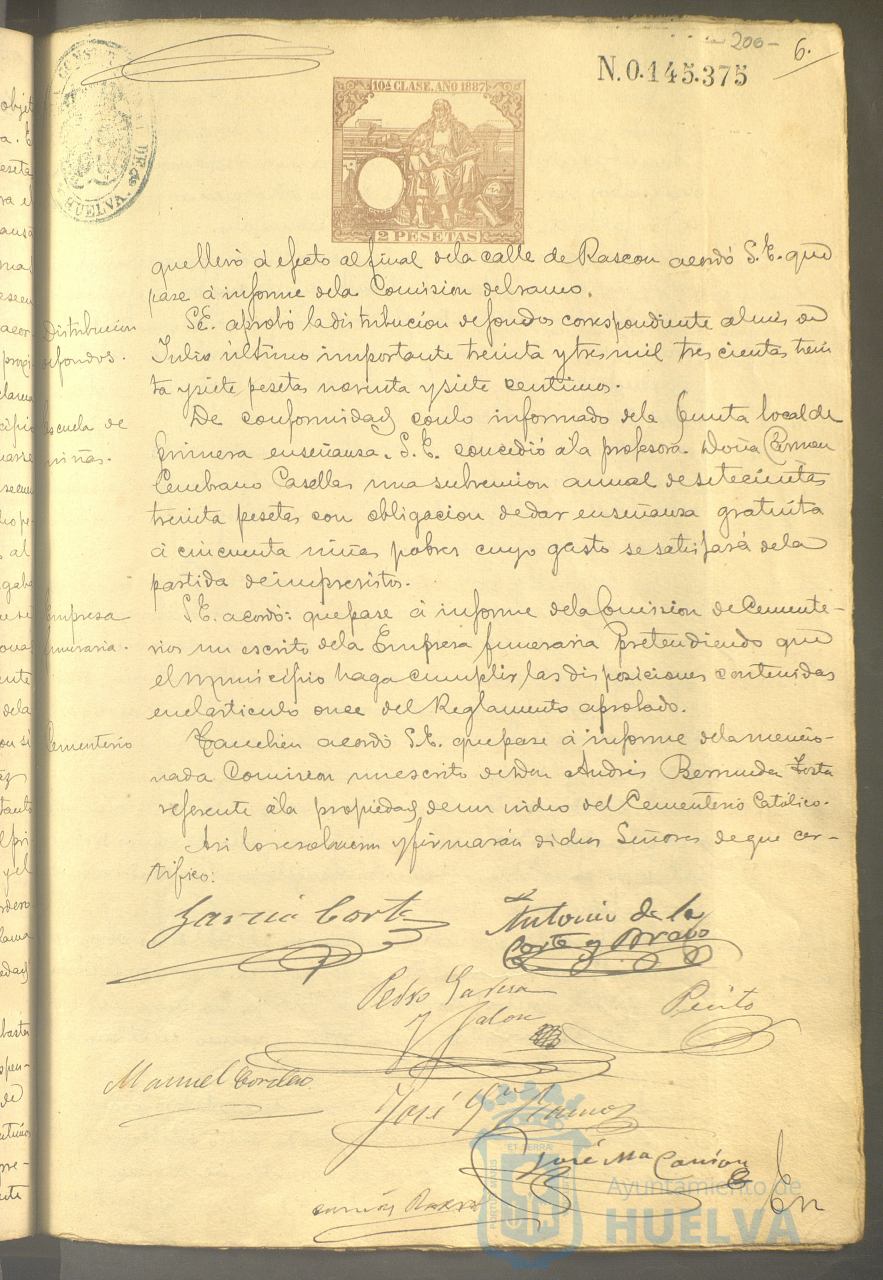 200-
6.
N.0.145.375
10ª CLASE, AÑO 1887
2 PESETAS
HUELVA
que llevó á efecto al final de la calle de Rascon acordó S.E. que
pase á informe de la Comision del ramo.
Distribucion
de fondos.
S.E. aprobó la distribucion de fondos correspondiente al mes de
Julio último importante treinta y tres mil trescientas trein
ta y siete pesetas noventa y siete centimos.
Escuela de
niñas.
De conformidad con lo informado de la Junta local de
primera enseñanza. S.E. concedió á la profesora Doña Carmen
Cembrano Casellas una subvencion annal de setecientas
treinta pesetas con obligacion de dar enseñanza gratuita
á cincuenta niñas pobres cuyo gasto se satisfará de la
partida de imprevistos.
Empresa
funeraria.
S.E. acordó: que pase á informe de la Comision de Cemente-
rios un escrito de la Empresa funeraria Pretendiendo que
el Municipio haga cumplir las disposiciones contenidas
en el articulo once del Reglamento aprobado.
Cementerio
Tambien acordó S.E. que pase á informe de la mencio-
nada Comision un escrito de Don Andrés Bermudez
referente á la propiedad de un nicho del Cementerio Católico.
Asi lo resolvieron y firmarán dichos Señores de que cer-
tifico:
Garcia Corte
Antonio de la
Corte y Bravo
Pedro Garcia
y Jalon
Manuel Cordero
José Gª Ramos
José Mª Carrion
Ayuntamiento de
HUELVA